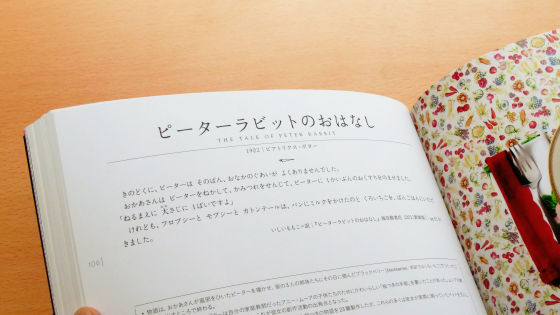 ピーターラビットのおはなし
THE TALE OF PETER RABBIT
1902│ビアトリクス・ポター
きのどくに、ピーターは そのばん、おなかのぐあいが よくありませんでした。
おかあさんは ピーターをねかして、かみつれをせんじて、ピーターに 1かいぶんのおくすりをのませました。
「ねるまえに 大さじに 1ぱいですよ」
けれども、フロプシーと モプシーと カトンテールは、パンにミルクをかけたのと くろいちごを、ばんごはんにいただ
きました。
いしいももこ＝訳│『ピーターラビットのおはなし』
106